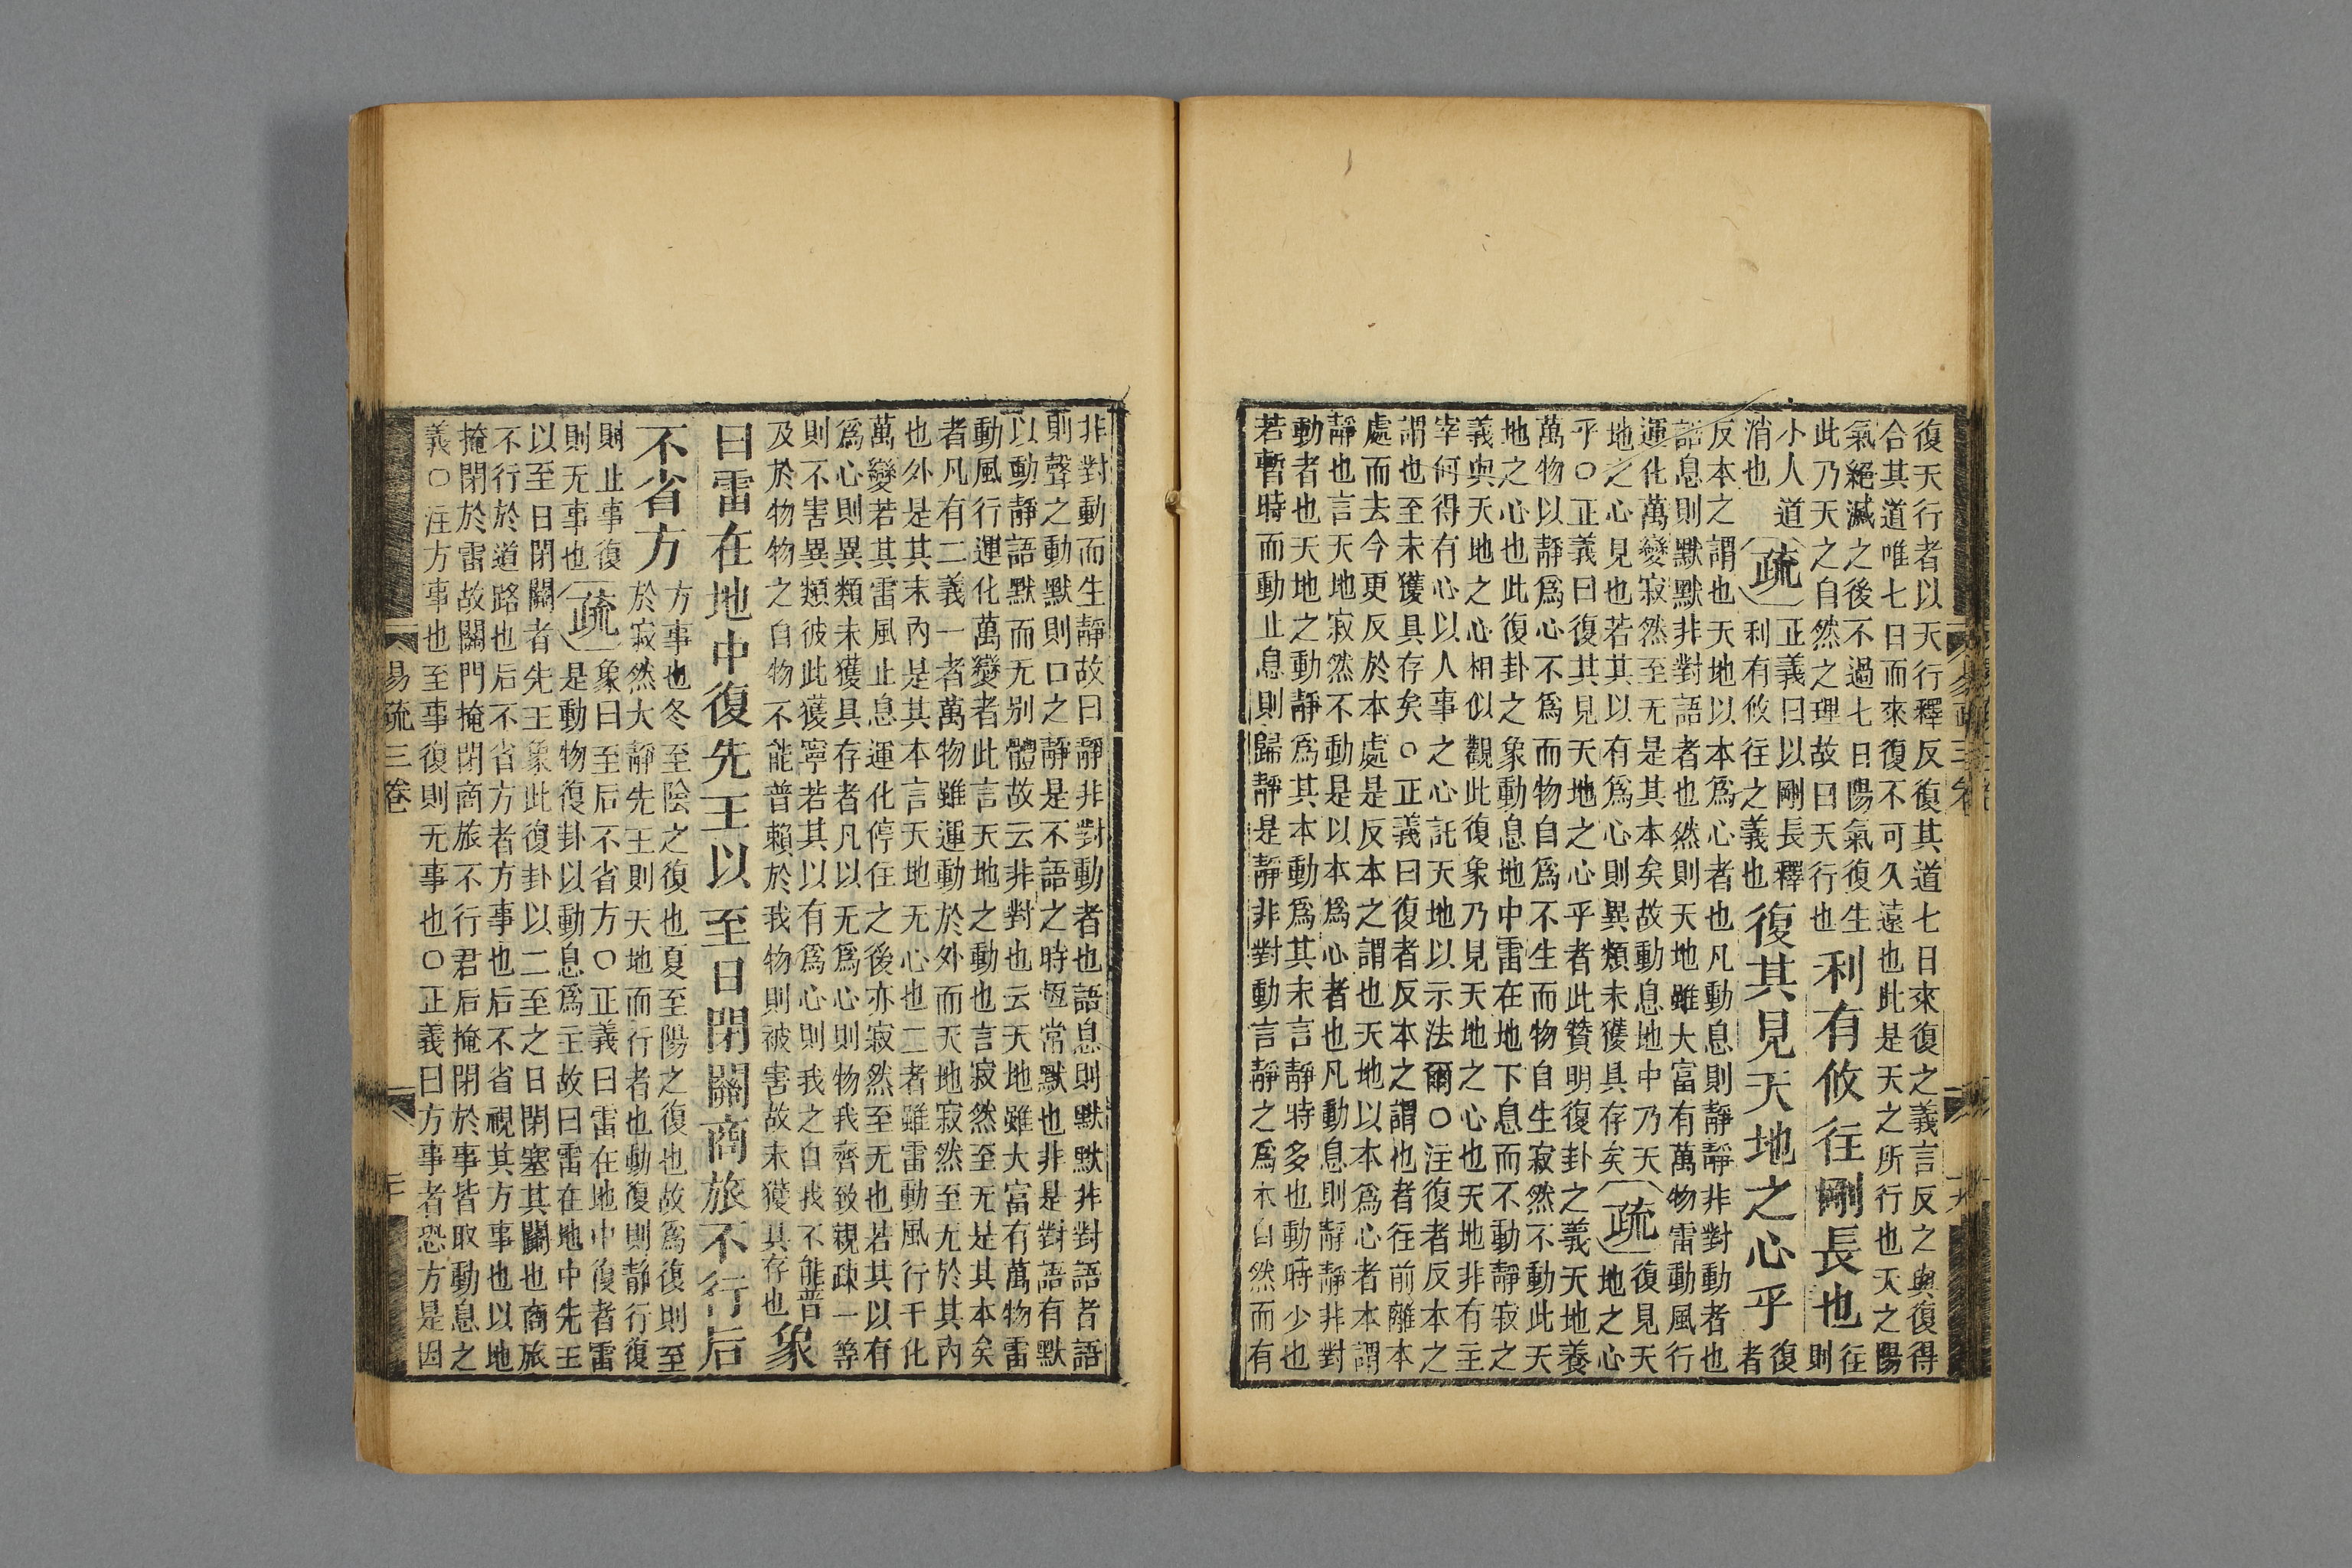 復天行者以天行釋反復其道七日來復之義言反之與復得
合其道唯七日而來復不可久遠也此是天之所行也天之陽
氣絕滅之後不過七日陽氣復生
此乃天之自然之理故曰天行也
利有攸往剛長也
往則
小人道
消也
疏
正義曰以剛長釋
利有攸往之義也
復其見天地之心乎
復者
反本之謂也天地以本爲心者也凡動息則靜靜非對動者也
語息則默默非對語者也然則天地雖大富有萬物雷動風行
運化萬變寂然至无是其本矣故動息地中乃天
地之心見也若其以有爲心則異類未獲具存矣
疏
復見天
地之心
乎○正義曰復其見天地之心乎者此贊明復卦之義天地養
萬物以靜爲心不爲而物自爲不生而物自生寂然不動此天
地之心也此復卦之象動息地中雷在地下息而不動靜寂之
義與天地之心相似觀此復象乃見天地之心也天地非有主
宰何得有心以人事之心託天地以示法爾○注復者反本之
謂也至未獲具存矣○正義曰復者反本之謂也者往前離本
處而去今更反於本處是反本之謂也天地以本爲心者本謂
靜也言天地寂然不動是以本爲心者也凡動息則靜靜非對
動者也天地之動靜爲其本動爲其末言靜時多也動時少也
若暫時而動止息則歸靜是靜非對動言靜之爲本自然而有
非對動而生靜故曰靜非對動者也語息則默默非對語者語
則聲之動默則口之靜是不語之時恆常默也非是對語有默
以動靜語默而无別體故云非對也云天地雖大富有萬物雷
動風行運化萬變者此言天地之動也言寂然至无是其本矣
者凡有二義一者萬物雖運動於外而天地寂然至无於其內
也外是其末內是其本言天地无心也二者雖雷動風行千化
萬變若其雷風止息運化停住之後亦寂然至无也若其以有
爲心則異類未獲具存者凡以无爲心則物我齊致親疎一等
則不害異類彼此獲寧若其以有爲心則我之自我不能普
及於物物之自物不能普賴於我物則被害故未獲具存也
象
曰雷在地中復先王以至日閉關商旅不行后
不省方
方事也冬至陰之復也夏至陽之復也故爲復則至
於寂然大靜先王則天地而行者也動復則靜行復
則止事復
則无事也
疏
象曰至后不省方○正義曰雷在地中復者雷
是動物復卦以動息爲主故曰雷在地中先王
以至日閉關者先王象此復卦以二至之日閉塞其關也商旅
不行於道路也后不省方者方事也后不省視其方事也以地
掩閉於雷故關門掩閉商旅不行君后掩閉於事皆取動息之
義○注方事也至事復則无事也○正義曰方事者恐方是因
易疏三卷